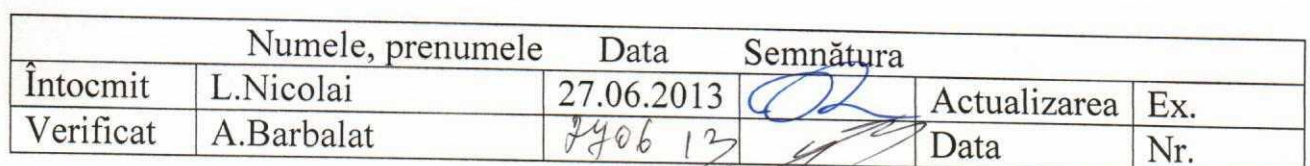 Numele, prenumele Data Semnătura
Întocmit L.Nicolai 27.06.2013 Actualizarea Ex.
Verificat A.Barbalat 2706 13 Data Nr.